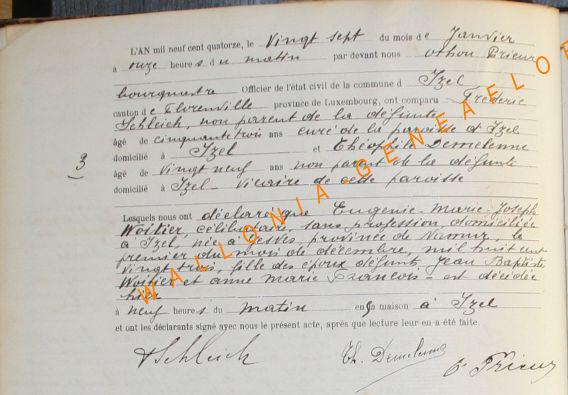 L'AN mil neuf cent quatorze, le Vingt sept du mois de Janvier
à onze heures du matin par devant nous Othon Prieur
bourgmestre Officier de l'état civil de la commune d Izel
canton de Florenville province de Luxembourg, ont comparu Fréderic
Schleich, non parent de la défunte
âgé de cinquante trois ans curé de la paroisse d'Izel
3
domicilié à Izel et Théophile Demelenne
âgé de vingt neuf ans non parent de la défunte
domicilié à Izel - Vicaire de cette paroisse
Lesquels nous ont déclaré que Eugénie - Marie - Joseph
Woitier, célibataire, sans profession, domiciliée
à Izel, née à Gesves, province de Namur, le
premier du mois de décembre, mil huit cent
vingt trois, fille des époux défunts, Jean Baptiste
Woitier et Anne Marie François - est décédée
hier
à neuf heures du matin en sa maison à Izel
et ont les déclarants signé avec nous le présent acte, après que lecture leur en a été faite.
Schleich Th. Demelenne O. Prieur
WALLONIA-GENEALO